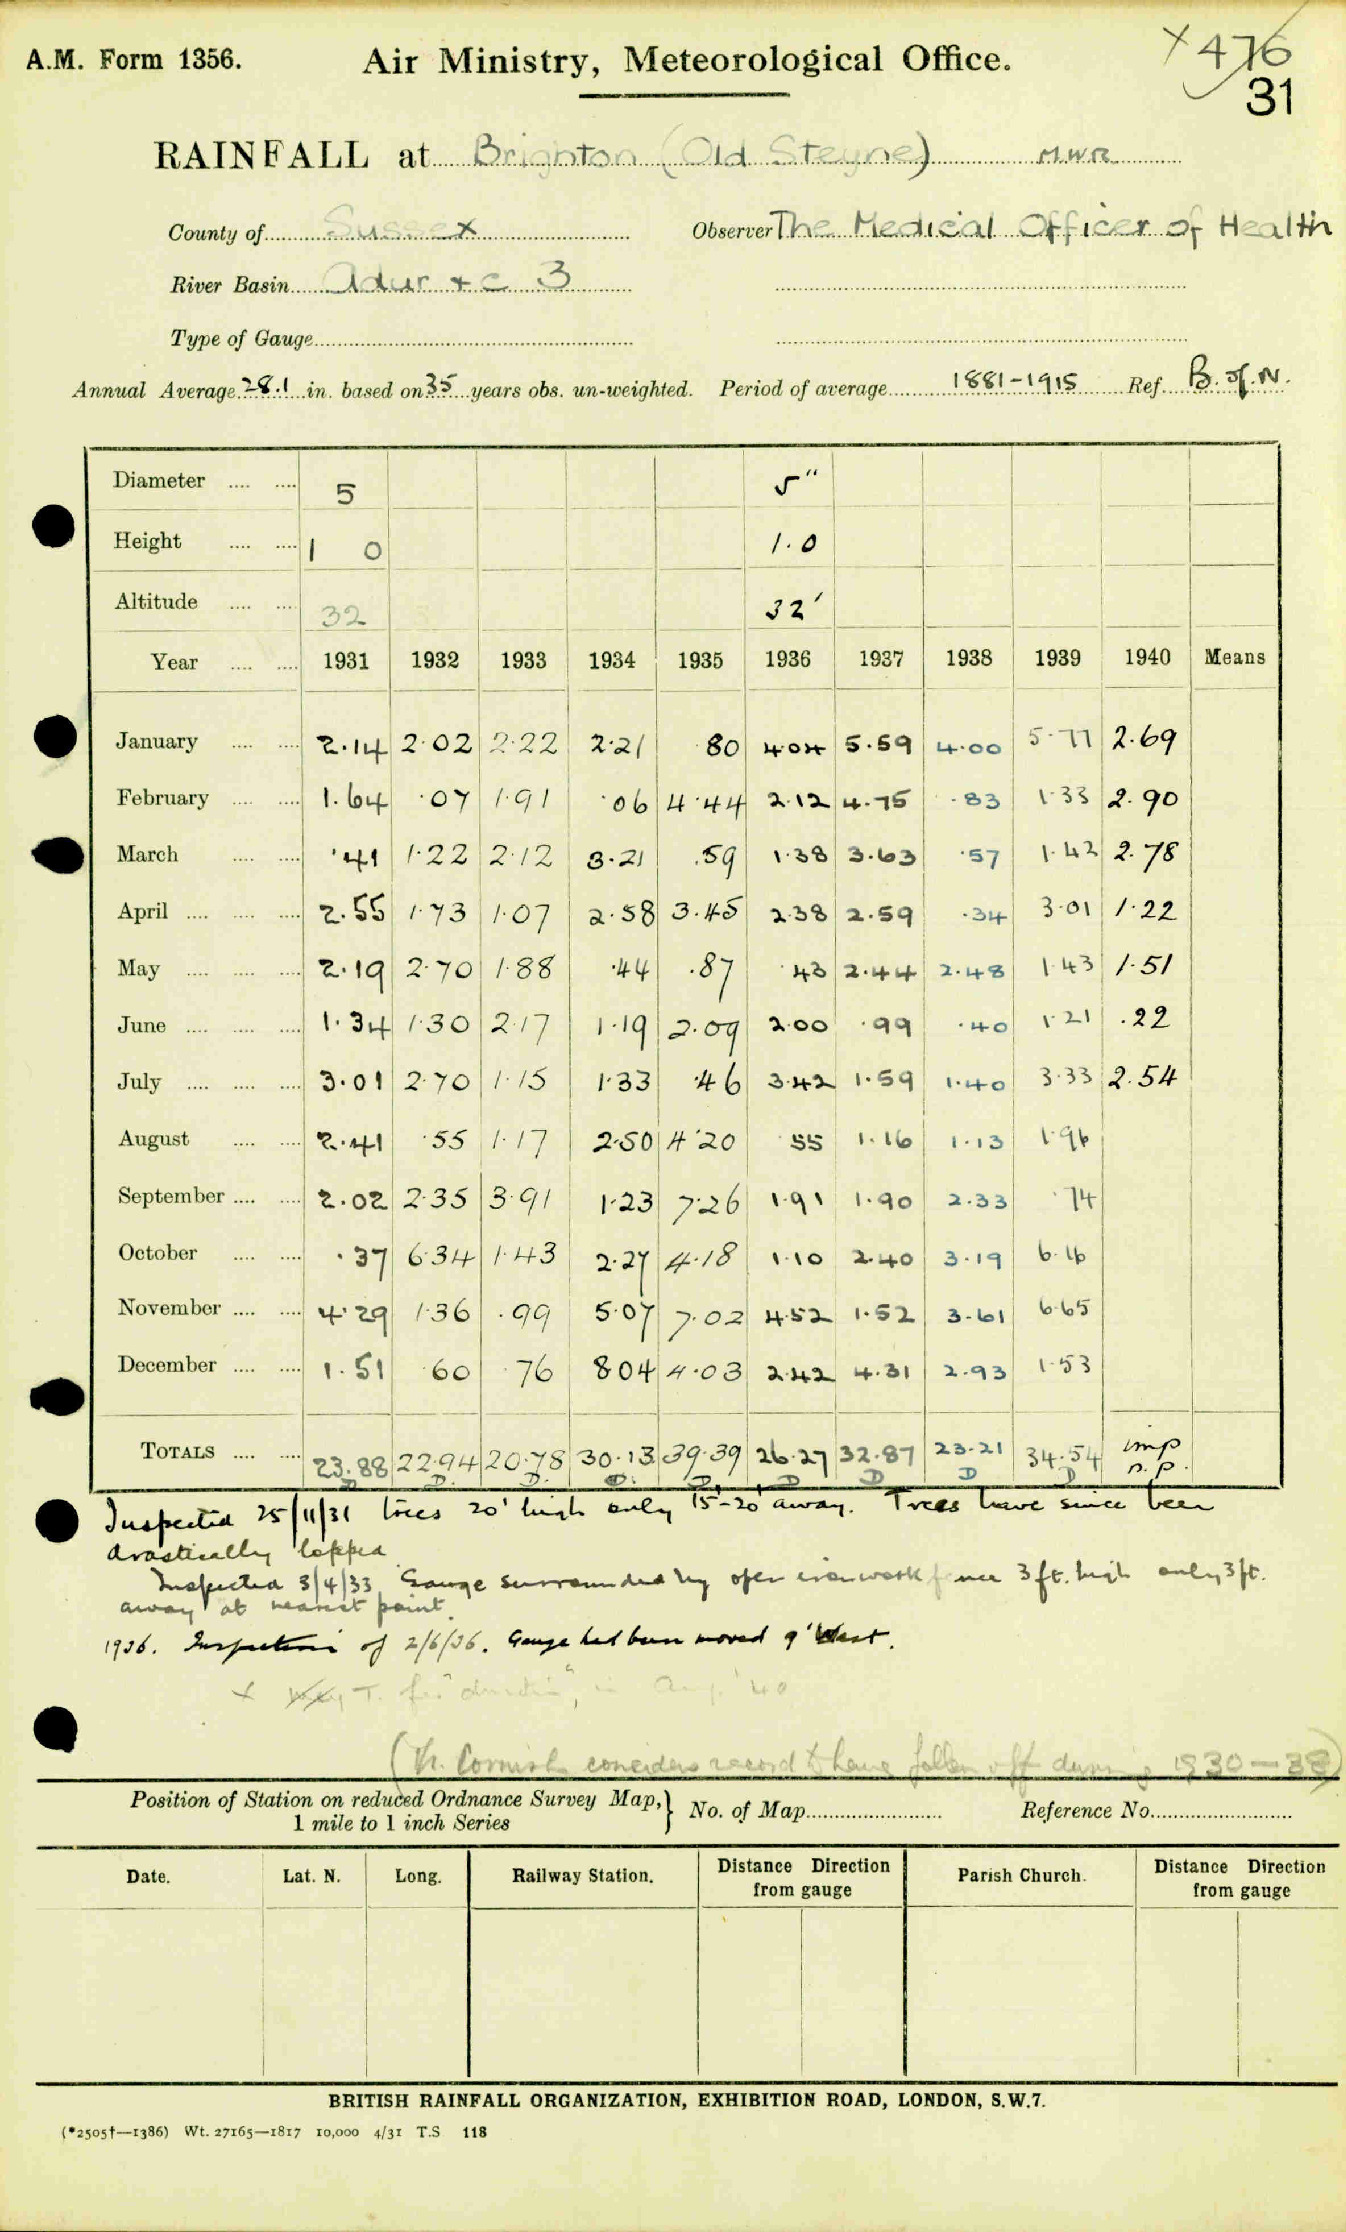 A.M. Form 1356. Air Ministry, Meteorological Office. × 476
31
RAINFALL at Brighton (Old Steyne) M.W.R.
County of Sussex Observer The Medical Officer of Health
River Basin Adur + c 3
Type of Gauge
Annual Average 28.1 in. based on 35 years obs. un-weighted. Period of average 1881-1915 Ref. B. of N.
Diameter 5 5"
Height 1 0 1.0
Altitude 32 32'
Year 1931 1932 1933 1934 1935 1936 1937 1938 1939 1940 Means
January 2.14 2.02 2.22 2.21 .80 4.04 5.59 4.00 5.77 2.69
February 1.64 .07 1.91 .06 4.44 2.12 4.75 .83 1.33 2.90
March .41 1.22 2.12 3.21 .59 1.38 3.63 .57 1.42 2.78
April 2.55 1.73 1.07 2.58 3.45 2.38 2.59 .34 3.01 1.22
May 2.19 2.70 1.88 .44 .87 .43 2.44 2.48 1.43 1.51
June 1.34 1.30 2.17 1.19 2.09 2.00 .99 .40 1.21 .22
July 3.01 2.70 1.15 1.33 .46 3.42 1.59 1.40 3.33 2.54
August 2.41 .55 1.17 2.50 4.20 .55 1.16 1.13 1.96
September 2.02 2.35 3.91 1.23 7.26 1.91 1.90 2.33 .74
October .37 6.34 1.43 2.27 4.18 1.10 2.40 3.19 6.16
November 4.29 1.36 .99 5.07 7.02 4.52 1.52 3.61 6.65
December 1.51 .60 .76 8.04 4.03 2.42 4.31 2.93 1.53
TOTALS 23.88 22.94 20.78 30.13 39.39 26.27 32.87 23.21 34.54 imp
D D. D. D. D. D D D D n.p.
Inspected 25/11/31 trees 20' high only 15'-20' away. Trees have since been
drastically lopped
Inspected 3/4/33 Gauge surrounded by open ironwork fence 3 ft. high only 3 ft.
away at nearest point.
1936. Inspection of 2/6/36. Gauge had been moved 9' West.
× T. for "duration", in Aug. '40
(Mr. Cornish considers record to have fallen off during 1930-38)
Position of Station on reduced Ordnance Survey Map,} No. of Map Reference No.
1 mile to 1 inch Series
Date. Lat. N. Long. Railway Station. Distance Direction from gauge Parish Church. Distance Direction from gauge
BRITISH RAINFALL ORGANIZATION, EXHIBITION ROAD, LONDON, S.W.7.
(*2505†—1386) Wt. 27165—1817 10,000 4/31 T.S 118